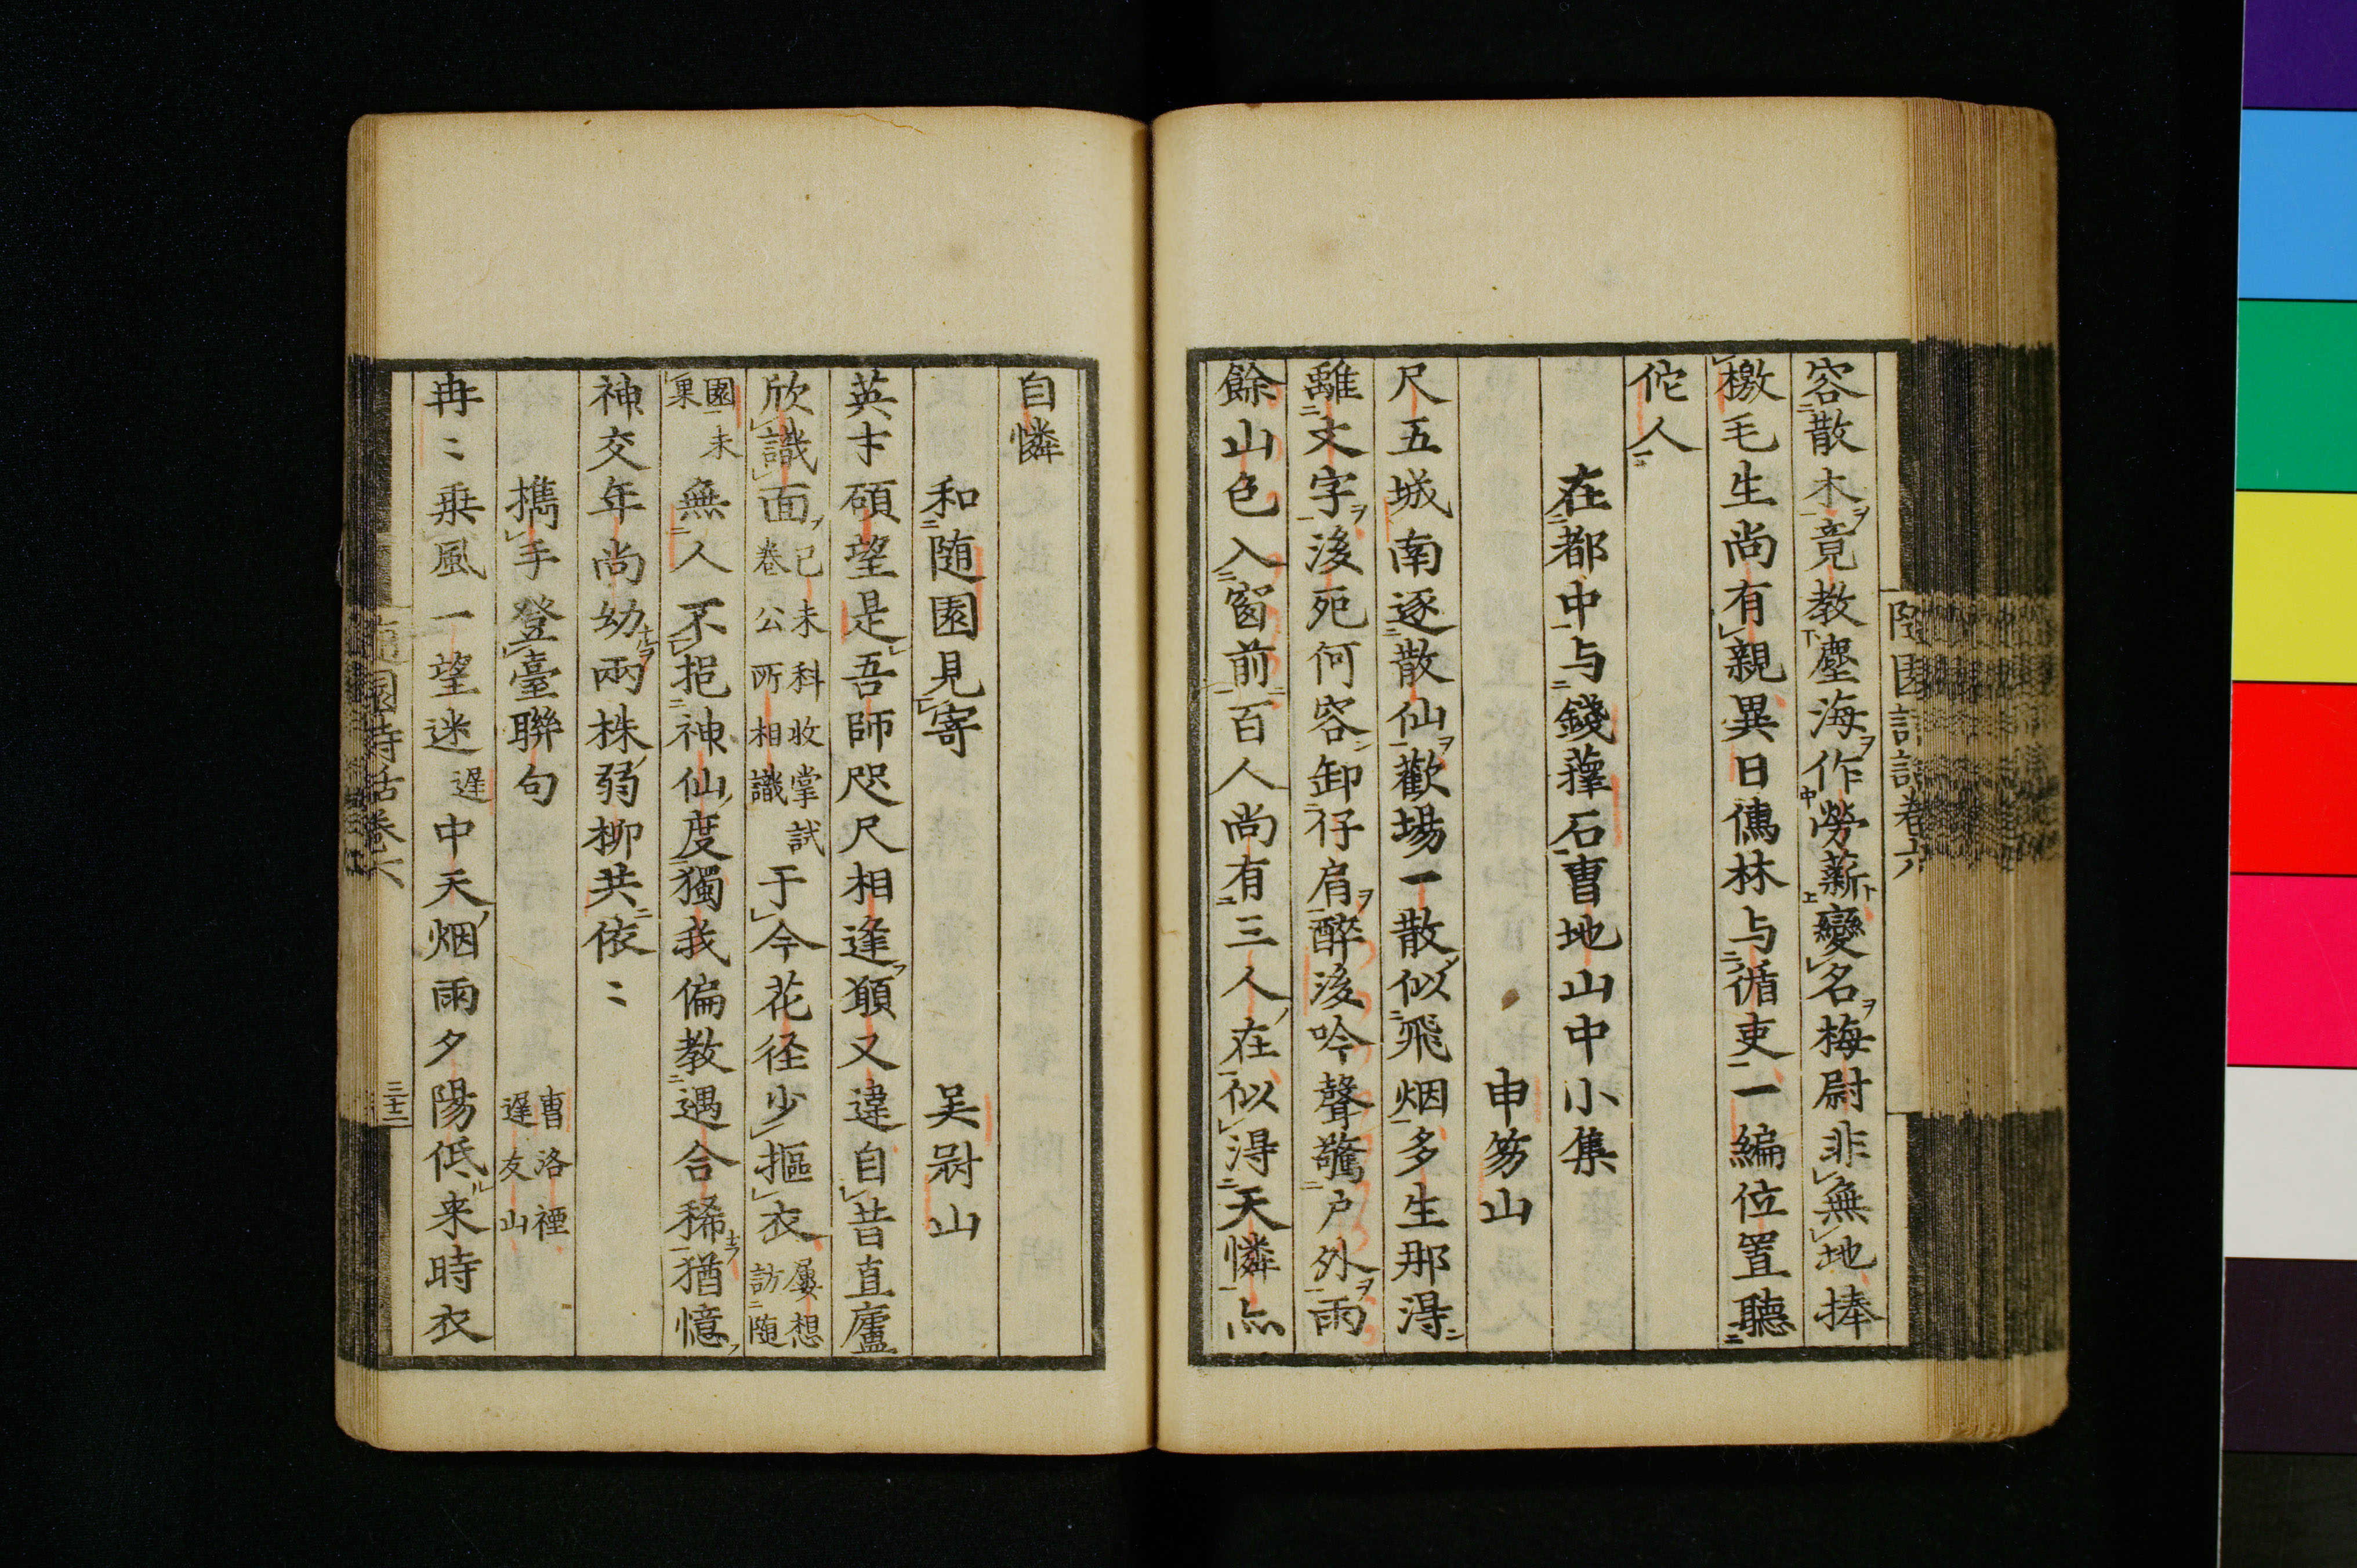 容散木竟教塵海作勞薪變名梅尉非無地捧
檄毛生尚有親異日儁林与循吏一編位置聽
佗人
在都中与錢蘀石曹地山中小集
申笏山
尺五城南逐散仙歡場一散似飛烟多生那淂
離文字後死何容卸仔肩醉後吟聲驚戶外雨
餘山色入窗前百人尚有三人在似淂天憐点
自憐
和随園見寄 吴尉山
英才碩望是吾師咫尺相逢願又違自昔直廬
欣識面己未科收掌試卷公所相識于今花径少摳衣屢想訪随
園未果無人不挹神仙度獨我偏教遇合稀猶憶
神交年尚幼兩株弱柳共依〻
擕手登臺聯句 曹洛禋 遅友山
冉〻乗風一望迷遅中天烟雨夕陽低来時衣
随園詩話卷六
三十二